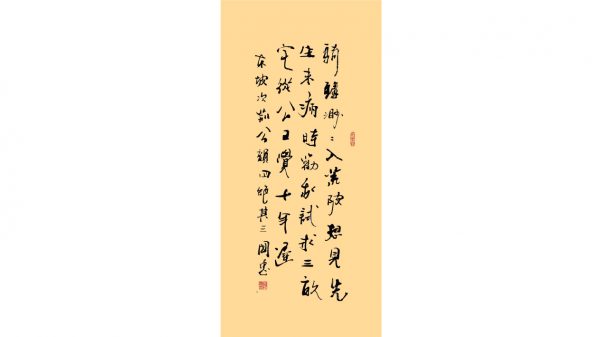 騎驢渺々入荒陂想見先
生未病時勸我試求三畝
宅從公已覺十年遲
东坡次荊公韻四绝其三